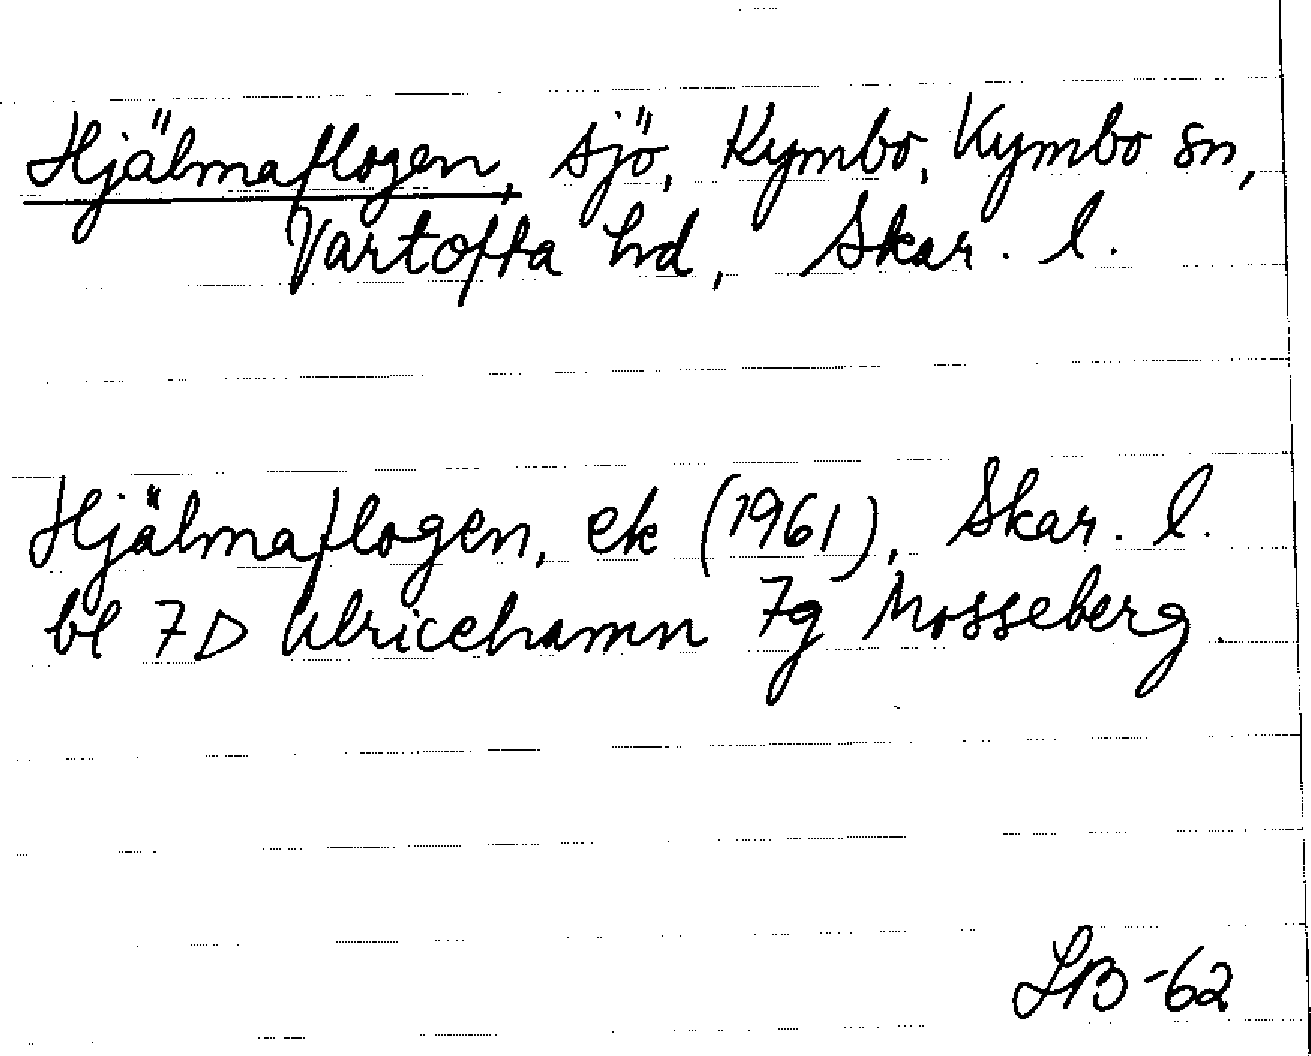 Hjälmaflogen, sjö, Kymbo, Kymbo sn,
Vartofta hd, Skar. l.
Hjälmaflogen, ek (1961), Skar. l.
bl 7D Ulricehamn 7g Mosseberg.
LB-62